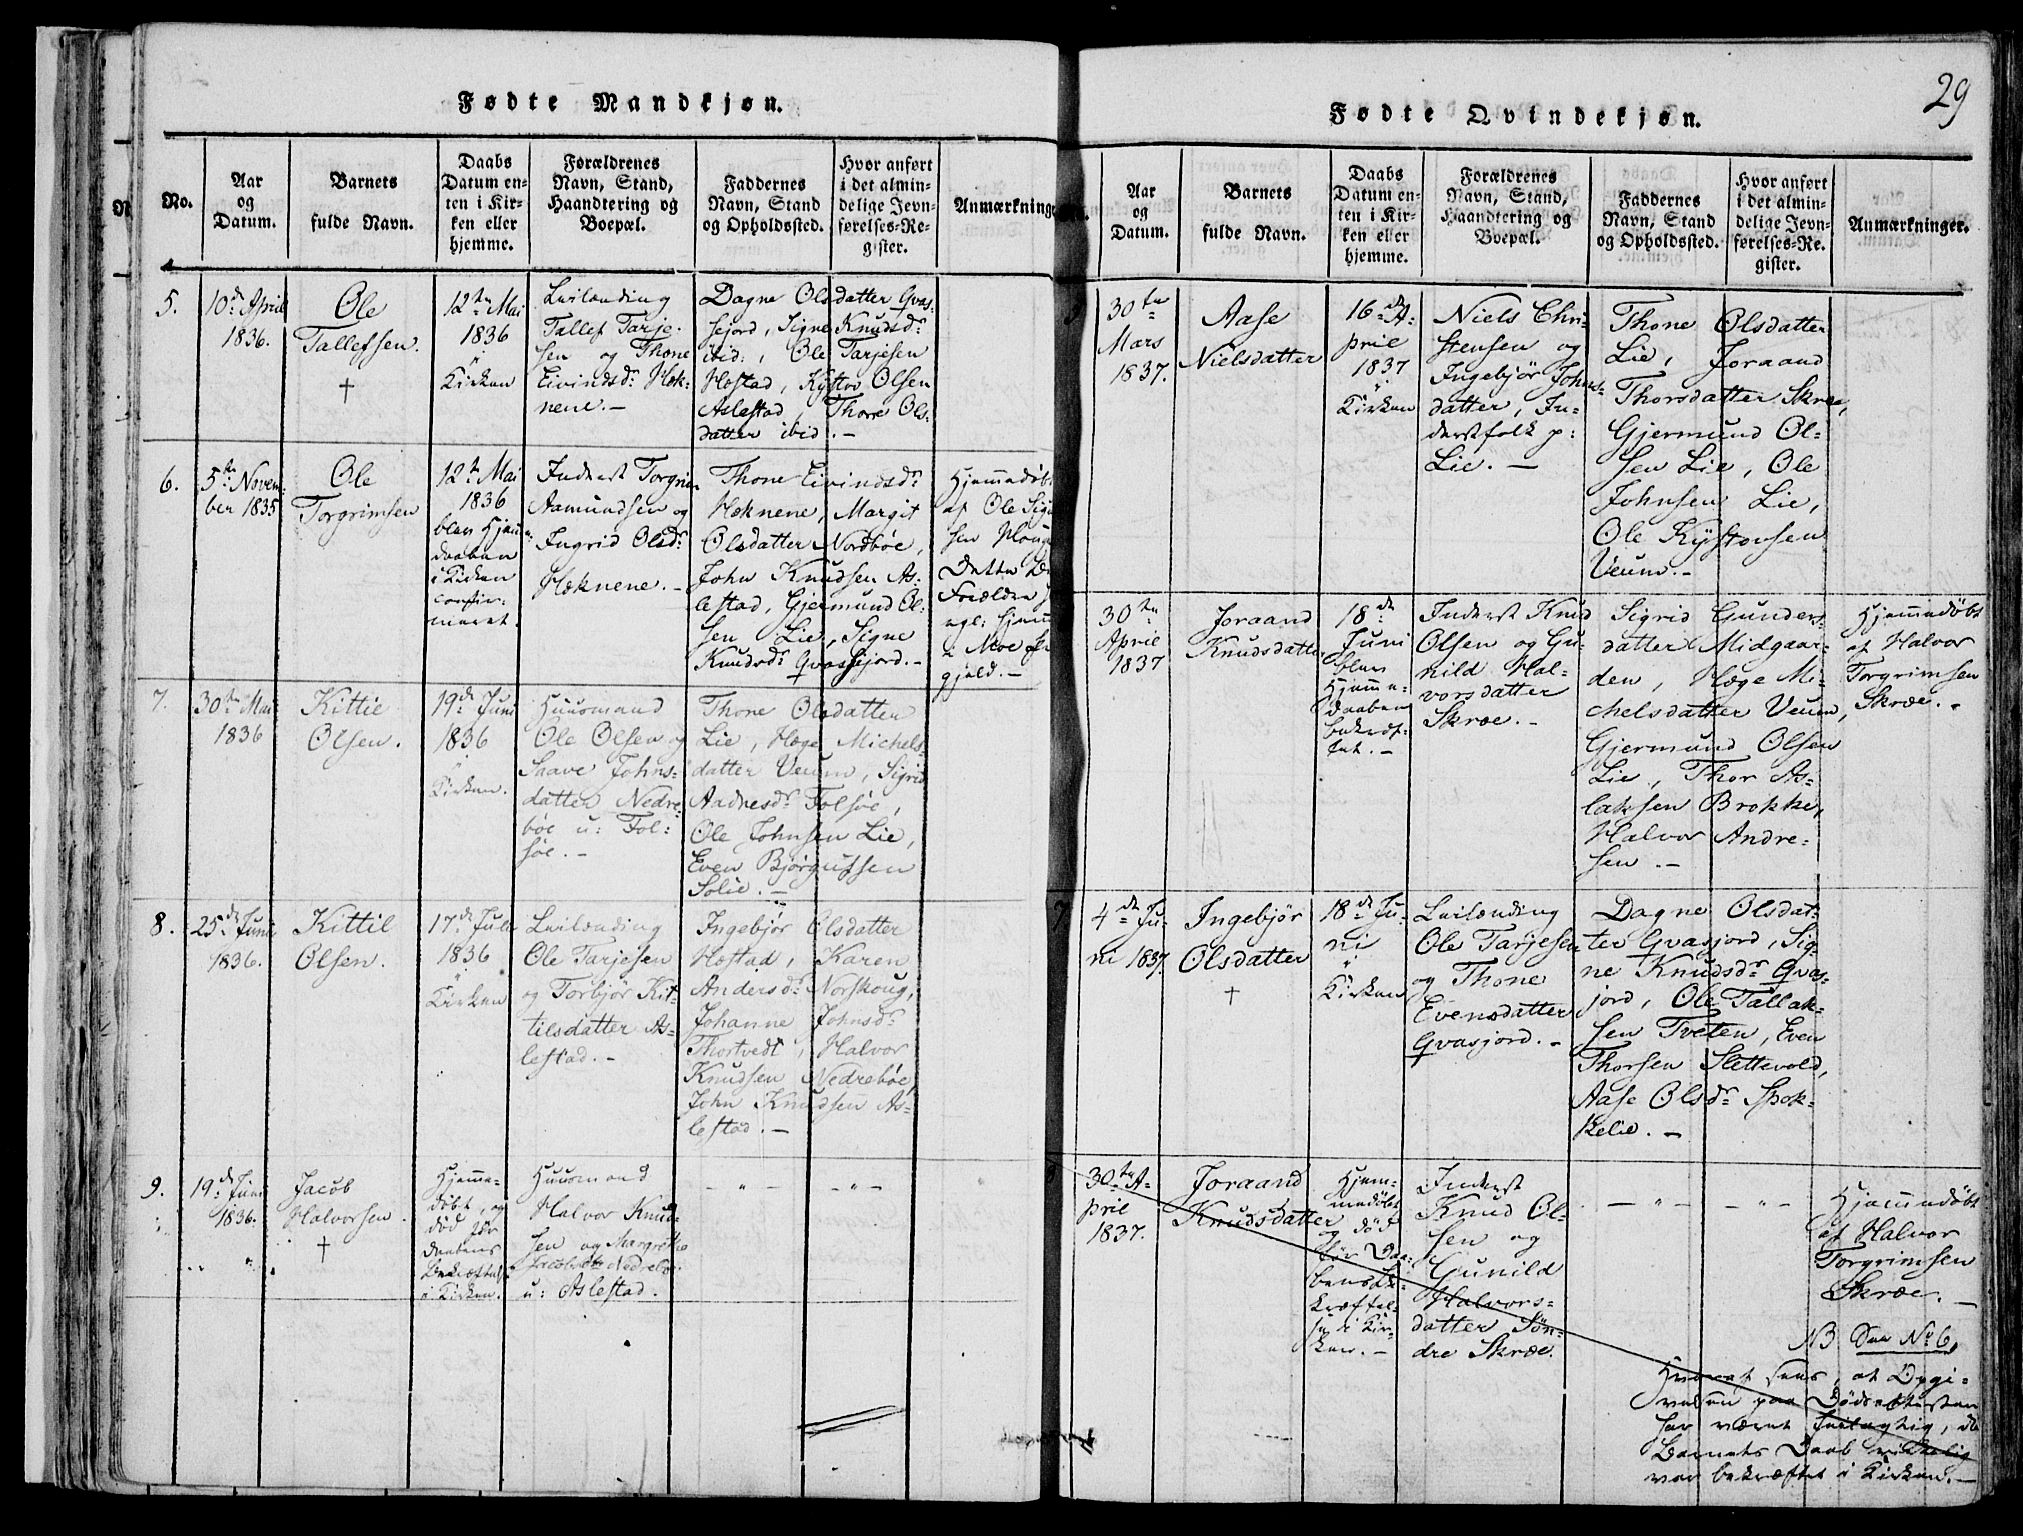 Fødte Mandkjøn.
No.
Aar
og
Datum.
Barnets
fulde Navn.
Daabs
Datum en=
ten i Kir=
ken eller
hjemme.
Forældrenes
Navn, Stand,
Haandtering og
Boepæl.
Faddernes
Navn, Stand
og Opholdssted.
Hvor anført
i det almin=
delige Jevn=
førelses-Re=
gister.
Anmærkninger
5.
10de April
1836.
Ole
Tallefsen.
†
12te Mai
1836
i
Kirken
Leilænding
Tallef Tarje=
sen og Thone
Eivindsdr Høk=
nene.-
Dagne Olsdatter Qvas=
sejord, Signe Knudsdr
ibid:, Ole Tarjesen
Hæstad, Kystov Olsen
Aslestad, Thone Ols=
datter ibid.-
6.
5te Novem=
ber 1835
Ole
Torgrimsen
12te Mai
1836
blev Hjem=
daaben
i Kirken
confir=
meret.
Inderst Torgrim
Aamundsen og
Ingrid Olsdr
Høknene.-
Thone Eivindsdr
Høknene, Margit
Olsdatter Nordbøe,
John Knudsen As=
lestad, Gjermund Ol=
sen Lie, Signe
Knudsdr Qvassejord.-
Hjemmedøbt
af Ole
sen
Dette
Forældre
i Moe
gjeld.-
7.
30te Mai
1836
Kittil
Olsen.
19de Juni
1836
i
Kirken.
Huusmand
Ole Olsen og
Saave Johns=
datter Nedre
bøe u: Fol=
søe.-
Thone Olsdatter
Lie, Høge Michels=
datter Veum, Sigrid
Aadnesdr Folsøe,
Ole Johnsen Lie,
Even Bjørgufsen
Solie.-
8.
25de Juni
1836.
Kittil
Olsen.
17de Juli
1836
i
Kirken
Leilænding
Ole Tarjesen
og Torbjør Kit=
tilsdatter As=
lestad.-
Ingebjør Olsdatter
Hæstad, Karen
Andersdr Norskoug,
Johanne Johnsdr
Thortvedt, Halvor
Knudsen Nedrebøe,
John Knudsen As=
lestad.-
9.
19de Juni
1836.
Jacob
Halvorsen.
†
Hjemme=
døbt, og
død før
Daabens
Bekræftelse
i Kirken.
Huusmand
Halvor Knud=
sen og Margrethe
Jacobsdr Nedrebø
u: Aslestad.
- " -
- " -
Fødte Qvindekjøn.
29
Aar
og
Datum.
Barnets
fulde Navn.
Daabs
Datum en=
ten i Kir=
ken eller
hjemme.
Forældrenes
Navn, Stand,
Haandtering og
Boepæl.
Faddernes
Navn, Stand
og Opholdssted.
Hvor anført
i det almin=
delige Jevn=
førelses-Re=
gister.
Anmærkninger.
30te
Mars
1837.
Aase
Nielsdatter
16de A=
pril
1837
i
Kirken
Niels Chri=
stensen og
Ingebjør Johns=
datter, In=
derstfolk p:
Lie.-
Thone Olsdatter
Lie, Joraand
Thorsdatter Skræe,
Gjermund Ol=
sen Lie, Ole
Johnsen Lie,
Ole Kystovsen
Veum.-
30te
April
1837
Joraand
Knudsdatter
18de
Juni
blev
Hjemme=
daaben
bekræf=
tet.-
Inderst Knud
Olsen og Gu=
nild Hal=
vorsdatter
Skræe.-
Sigrid Gunders=
datter Midgaar=
den, Høge Mi=
chelsdatter Veum,
Gjermund Olsen
Lie, Thor As=
laksen Brokke,
Halvor Andre=
sen.-
Hjemmedøbt
af Halvor
Torgrimsen
Skræe.-
7
4de Ju=
ni 1837.
Ingebjør
Olsdatter
†
18de Ju=
ni
i
Kirken
Leilænding
Ole Tarjesen
og Thone
Evensdatter
Qvasjord.-
Dagne Olsdat=
ter Qvasjord, Sig=
ne Knudsdr Qvas=
jord, Ole Tallak=
sen Tveten, Even
Thorsen Slettevold,
Aase Olsdr Skok=
kelie.-
30te A=
pril
1837.
Joraand
Knudsdatter
Hjem=
medøbt
og død
før Daa=
bens Be=
kræftel=
se i Kir=
ken.-
Inderst
Knud Ol=
sen og
Gunild
Halvors=
datter Søn=
dre Skræe.
- " -
- " -
Hjemmedøbt
af Halvor
Torgrimsen
Skræe.-
NB See No 6,
Hvoraf sees, at Opgi=
velsen paa Dødsattesten
har været feilagtig, da
Barnets Daab virkelig
var bekræftet i Kirken.-